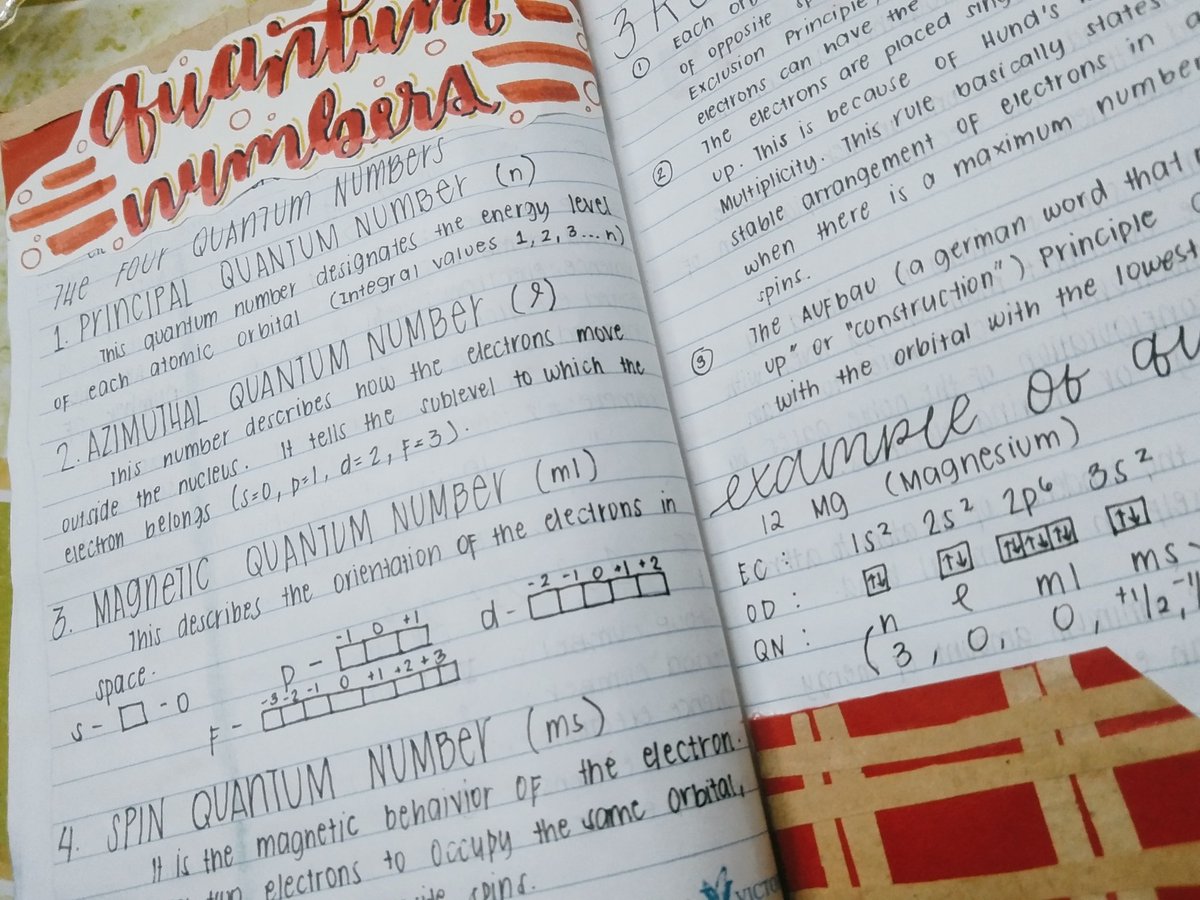 quantum
numbers
THE FOUR QUANTUM NUMBERS
1. PRINCIPAL QUANTUM NUMBER (n)
This quantum number designates the energy level
of each atomic orbital (Integral values 1, 2, 3 ... n)
2. AZIMUTHAL QUANTUM NUMBER (l)
This number describes how the electrons move
outside the nucleus. It tells the sublevel to which the
electron belongs (s=0, p=1, d=2, F=3).
3. MAGNETIC QUANTUM NUMBER (ml)
This describes the orientation of the electrons in
space.
s - - 0
P - -1 0 +1
d - -2 -1 0 +1 +2
F - -3 -2 -1 0 +1 +2 +3
4. SPIN QUANTUM NUMBER (ms)
It is the magnetic behaivior of the electron.
electrons to occupy the same orbital,
spins.
3
① Each
of opposite
Exclusion Principle,
electrons can have the
② The electrons are placed
up. This is because of Hund's
Multiplicity. This rule basically states
stable arrangement of electrons in
when there is a maximum number
spins.
③ The Aufbau (a german word that
up" or "construction") Principle
with the orbital with the lowest
example of qu
12 Mg (Magnesium)
EC: 1s² 2s² 2p⁶ 3s²
OD: ↑↓ ↑↓ ↑↓↑↓↑↓ ↑↓
n l ml ms
QN: (3, 0, 0, +1/2,
VICTO